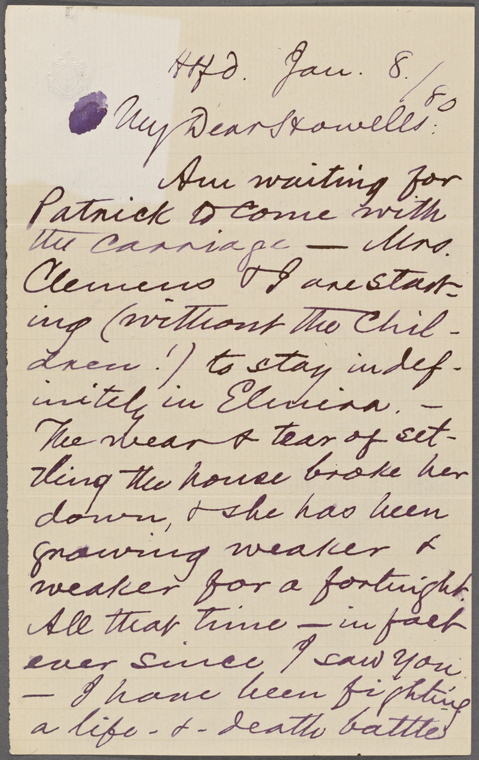 Htfd. Jan. 8./80
My Dear Howells:
Am waiting for
Patrick to come with
the carriage — Mrs.
Clemens & I are start-
ing (without the Chil-
dren!) to stay indef-
initely in Elmira. —
The wear & tear of set-
tling the house broke her
down, & she has been
growing weaker &
weaker for a fortnight.
All that time — in fact
ever since I saw you
— I have been fighting
a life-&-death battle